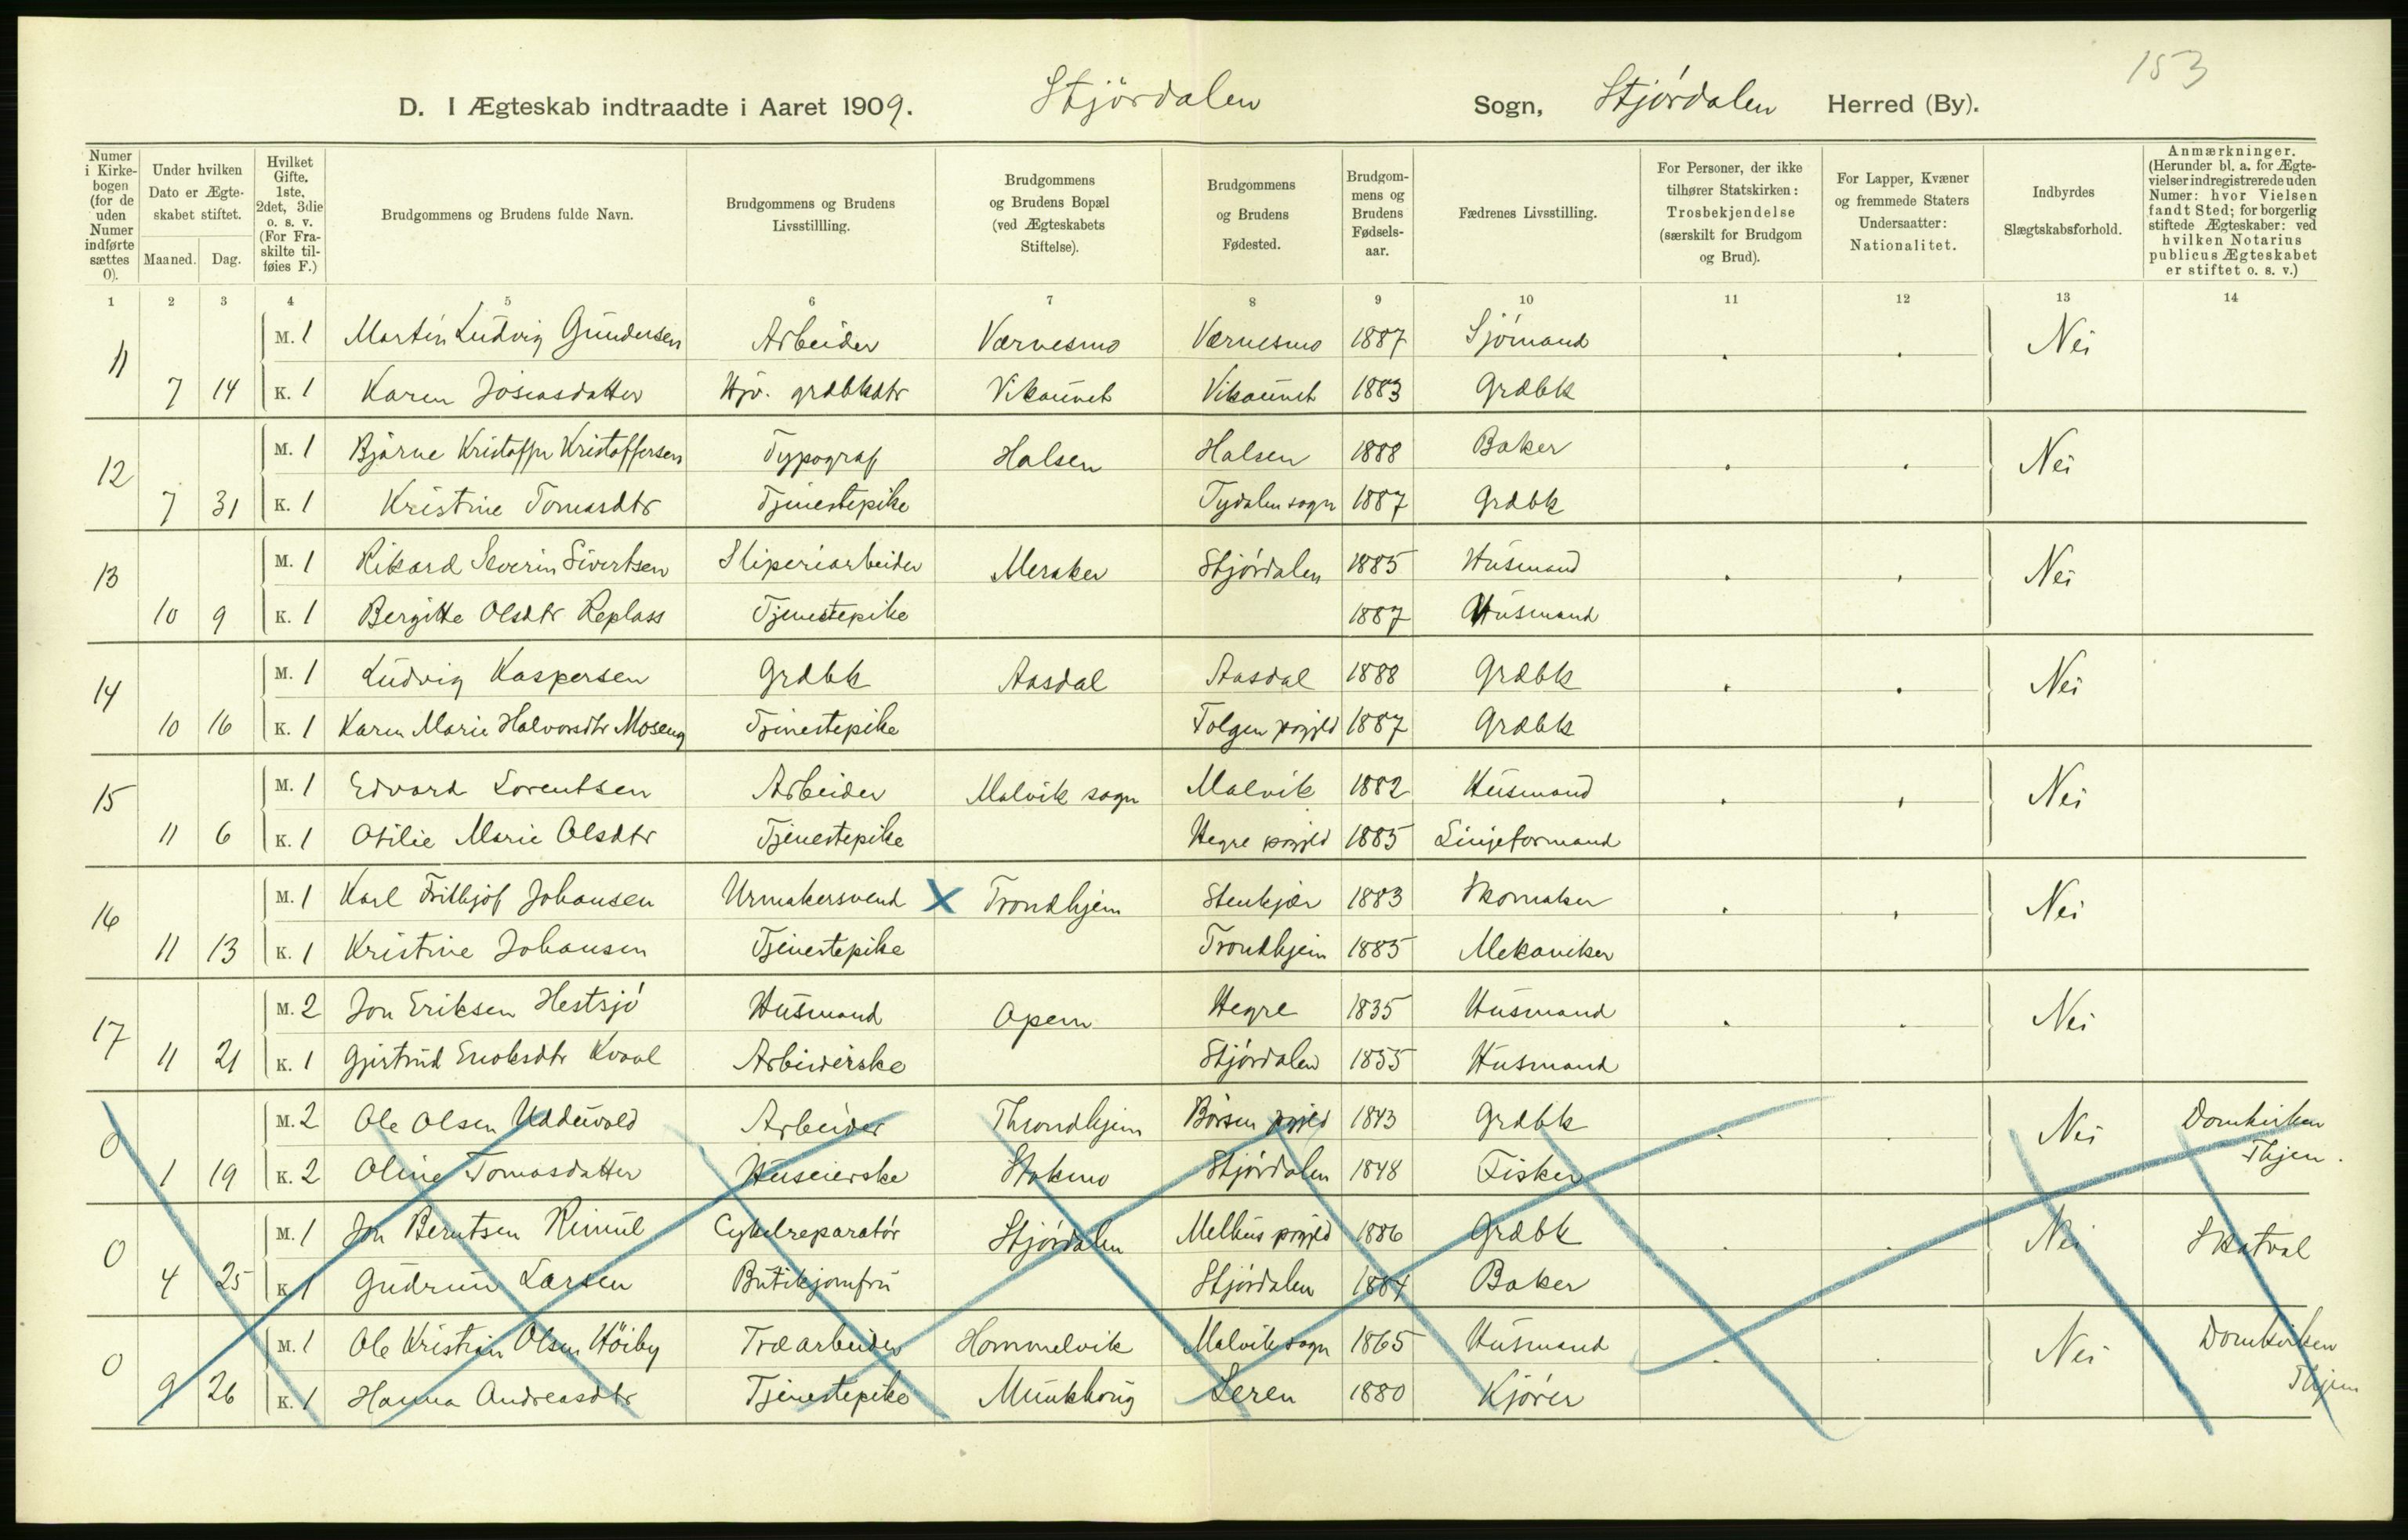 153
D. I Ægteskab indtraadte i Aaret 1909. Stjördalen Sogn, Stjórdalen Herred (By).
Numer i Kirkebogen (for de uden Numer indførte sættes 0).
Under hvilken Dato er Ægteskabet stiftet.
Maaned. Dag.
Hvilket Gifte. 1ste, 2det, 3die o. s. v. (For Fraskilte tilføies F.)
Brudgommens og Brudens fulde Navn.
Brudgommens og Brudens Livsstillling.
Brudgommens og Brudens Bopæl (ved Ægteskabets Stiftelse).
Brudgommens og Brudens Fødested.
Brudgommens og Brudens Fødselsaar.
Fædrenes Livsstilling.
For Personer, der ikke tilhører Statskirken: Trosbekjendelse (særskilt for Brudgom og Brud).
For Lapper, Kvæner og fremmede Staters Undersaatter: Nationalitet.
Indbyrdes Slægtskabsforhold.
Anmærkninger. (Herunder bl. a. for Ægtevielser indregistrerede uden Numer: hvor Vielsen fandt Sted; for borgerlig stiftede Ægteskaber: ved hvilken Notarius publicus Ægteskabet er stiftet o. s. v.)
1 2 3 4 5 6 7 8 9 10 11 12 13 14
11 M. 1 Martin Ludvig Gundersen Arbeider Værnesmo Værnesmo 1887 Sjómand Nei
7 14 K. 1 Karen Josiasdatter Hjv. grdbkdtr Vikaunet Vikaunet 1883 Grdbk
12 M. 1 Bjarne Kristoffer Kristoffersen Typograf Halsen Halsen 1888 Baker Nei
7 31 K. 1 Kristine Tomasdtr Tjenestepike Tydalen sogn 1887 Grdbk
13 M. 1 Rikard Severin Sivertsen Sliperiarbeider Meraker Stjórdalen 1885 Husmand Nei
10 9 K. 1 Bergitte Olsdtr Replass Tjenestepike 1887 Husmand
14 M. 1 Ludvig Kaspersen Grdbk Aasdal Aasdal 1888 Grdbk Nei
10 16 K. 1 Karen Marie Halvorsdtr Moseng Tjenestepike Tolgen prgjld 1887 Grdbk
15 M. 1 Edvard Lorentsen Arbeider Malvik sogn Malvik 1882 Husmand Nei
11 6 K. 1 Otilie Marie Olsdtr Tjenestepike Hegre prgjld 1885 Linjeformand
16 M. 1 Karl Frithjof Johansen Urmakersvend X Trondhjem Stenkjær 1883 Skomaker Nei
11 13 K. 1 Kristine Johansen Tjenestepike Trondhjem 1885 Mekaniker
17 M. 2 Jon Eriksen Hestsjó Husmand Opem Hegre 1835 Husmand Nei
11 21 K. 1 Gjertrud Enoksdtr Kvaal Arbeiderske Stjórdalen 1855 Husmand
0 M. 2 Ole Olsen Uddevold Arbeider Throndhjem Börsen prgjld 1843 Grdbk Nei Domkirken
1 19 K. 2 Oline Tomasdatter Huseierske Stokmo Stjórdalen 1848 Fisker Thjem.
0 M. 1 Jon Berntsen Rimul Cykelreparatór Stjórdalen Melhus prgjld 1886 Grdbk Nei Skatval
4 25 K. 1 Gudrun Larsen Butikjomfru Stjórdalen 1884 Baker
0 M. 1 Ole Kristian Olsen Höiby Træarbeider Hommelvik Malvik sogn 1865 Husmand Nei Domkirken
9 26 K. 1 Hanna Andreasdtr Tjenestepike Munkhaug Leren 1880 Kjórer Thjem